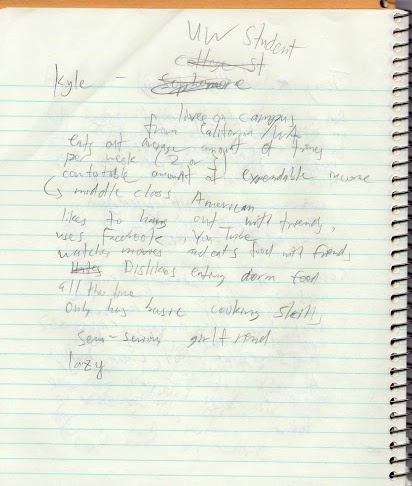 UW Student
college st
Kyle - Sophomore
lives on campus
from California / WA
eats out average amount of times
per week (2 or 3)
comfortable amount of expendable income
↳ middle class American
likes to hang out with friends,
uses Facebook, YouTube
watches movies and eats food with friends
Hates Dislikes eating dorm food
all the time
only has basic cooking skills
semi-serious girlfriend
lazy